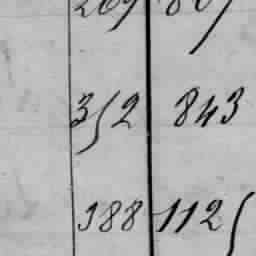 352 843
388 1125